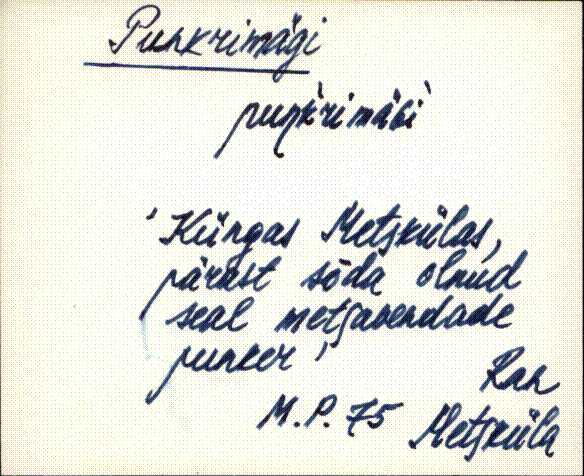 Punkrimägi
punk̀rimäGì
'Küngas Metskülas,
pärast sõda olnud
seal metsavendade
punker'
Ran
M.P. 75 Metsküla